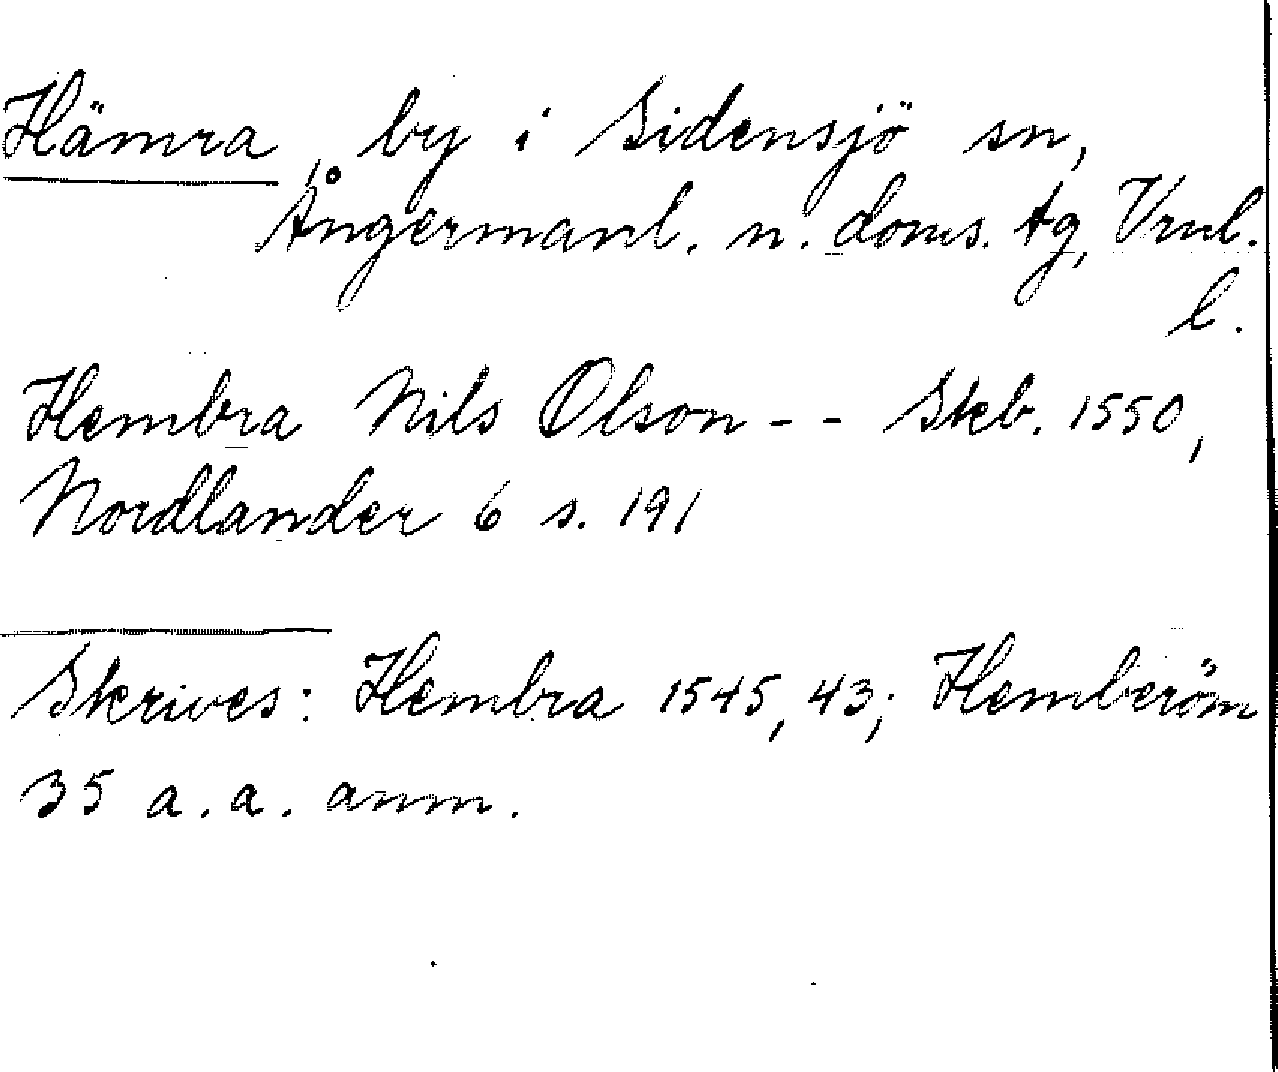 Hämra, by i Sidensjö sn,
Ångermanl. n. doms. tg, Vrnl.
l.
Hembra Nils Olson - - Skb. 1550,
Nordlander 6 s. 191
Skrives: Hembra 1545, 43; Hemberöm
35 a. a. anm.